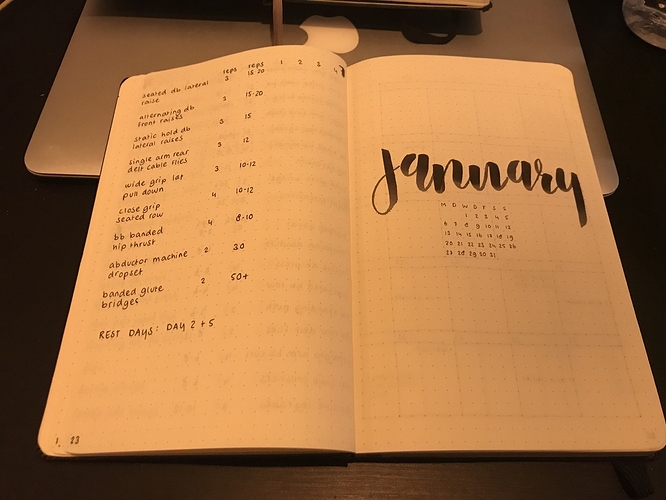 reps reps 1 2 3 4
seated db lateral 3 15-20
raise
alternating db 3 15-20
front raises
static hold db 3 15
lateral raises
single arm rear 3 12
delt cable flies
wide grip lat 3 10-12
pull down
close grip 4 10-12
seated row
bb banded 4 8-10
hip thrust
abductor machine 2 30
dropset
banded glute 2 50+
bridges
REST DAYS: DAY 2 + 5
23
january
M D W D F S S
1 2 3 4 5
6 7 8 9 10 11 12
13 14 15 16 17 18 19
20 21 22 23 24 25 26
27 28 29 30 31